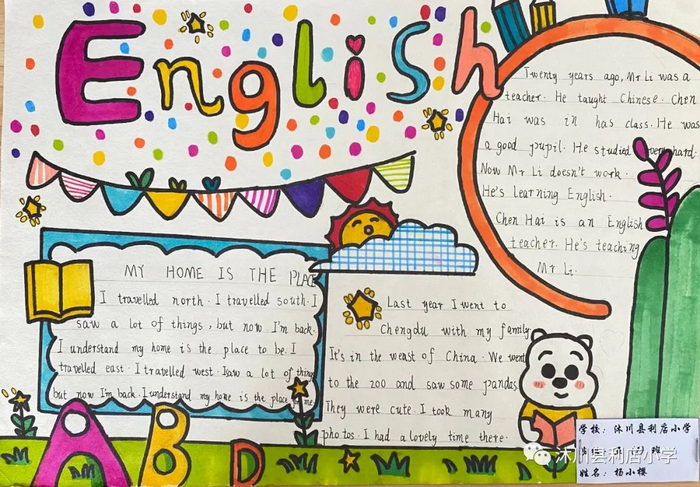 English
Twenty years ago, Mr Li was a
teacher. He taught Chinese. Chen
Hai was in has class. He was
a good pupil. He studied very hard.
Now Mr Li doesn't work.
He's Learning English.
Chen Hai is an English
teacher. He's teaching
Mr Li.
MY HOME IS THE PLACE
I travelled north. I travelled south. I
saw a lot of things, but now I'm back.
I understand my home is the place to be. I
travelled east. I travelled west. I saw a lot of things
but now I'm back. I understand my home is the place to me.
Last year I went to
Chengdu with my family
It's in the weast of China. We went
to the zoo and saw some pandas.
They were cute. I took many
photos. I had a lovely time there.
A B D
学校: 沐川县利店小学
班
姓名: 杨小樱
沐川县利店小学